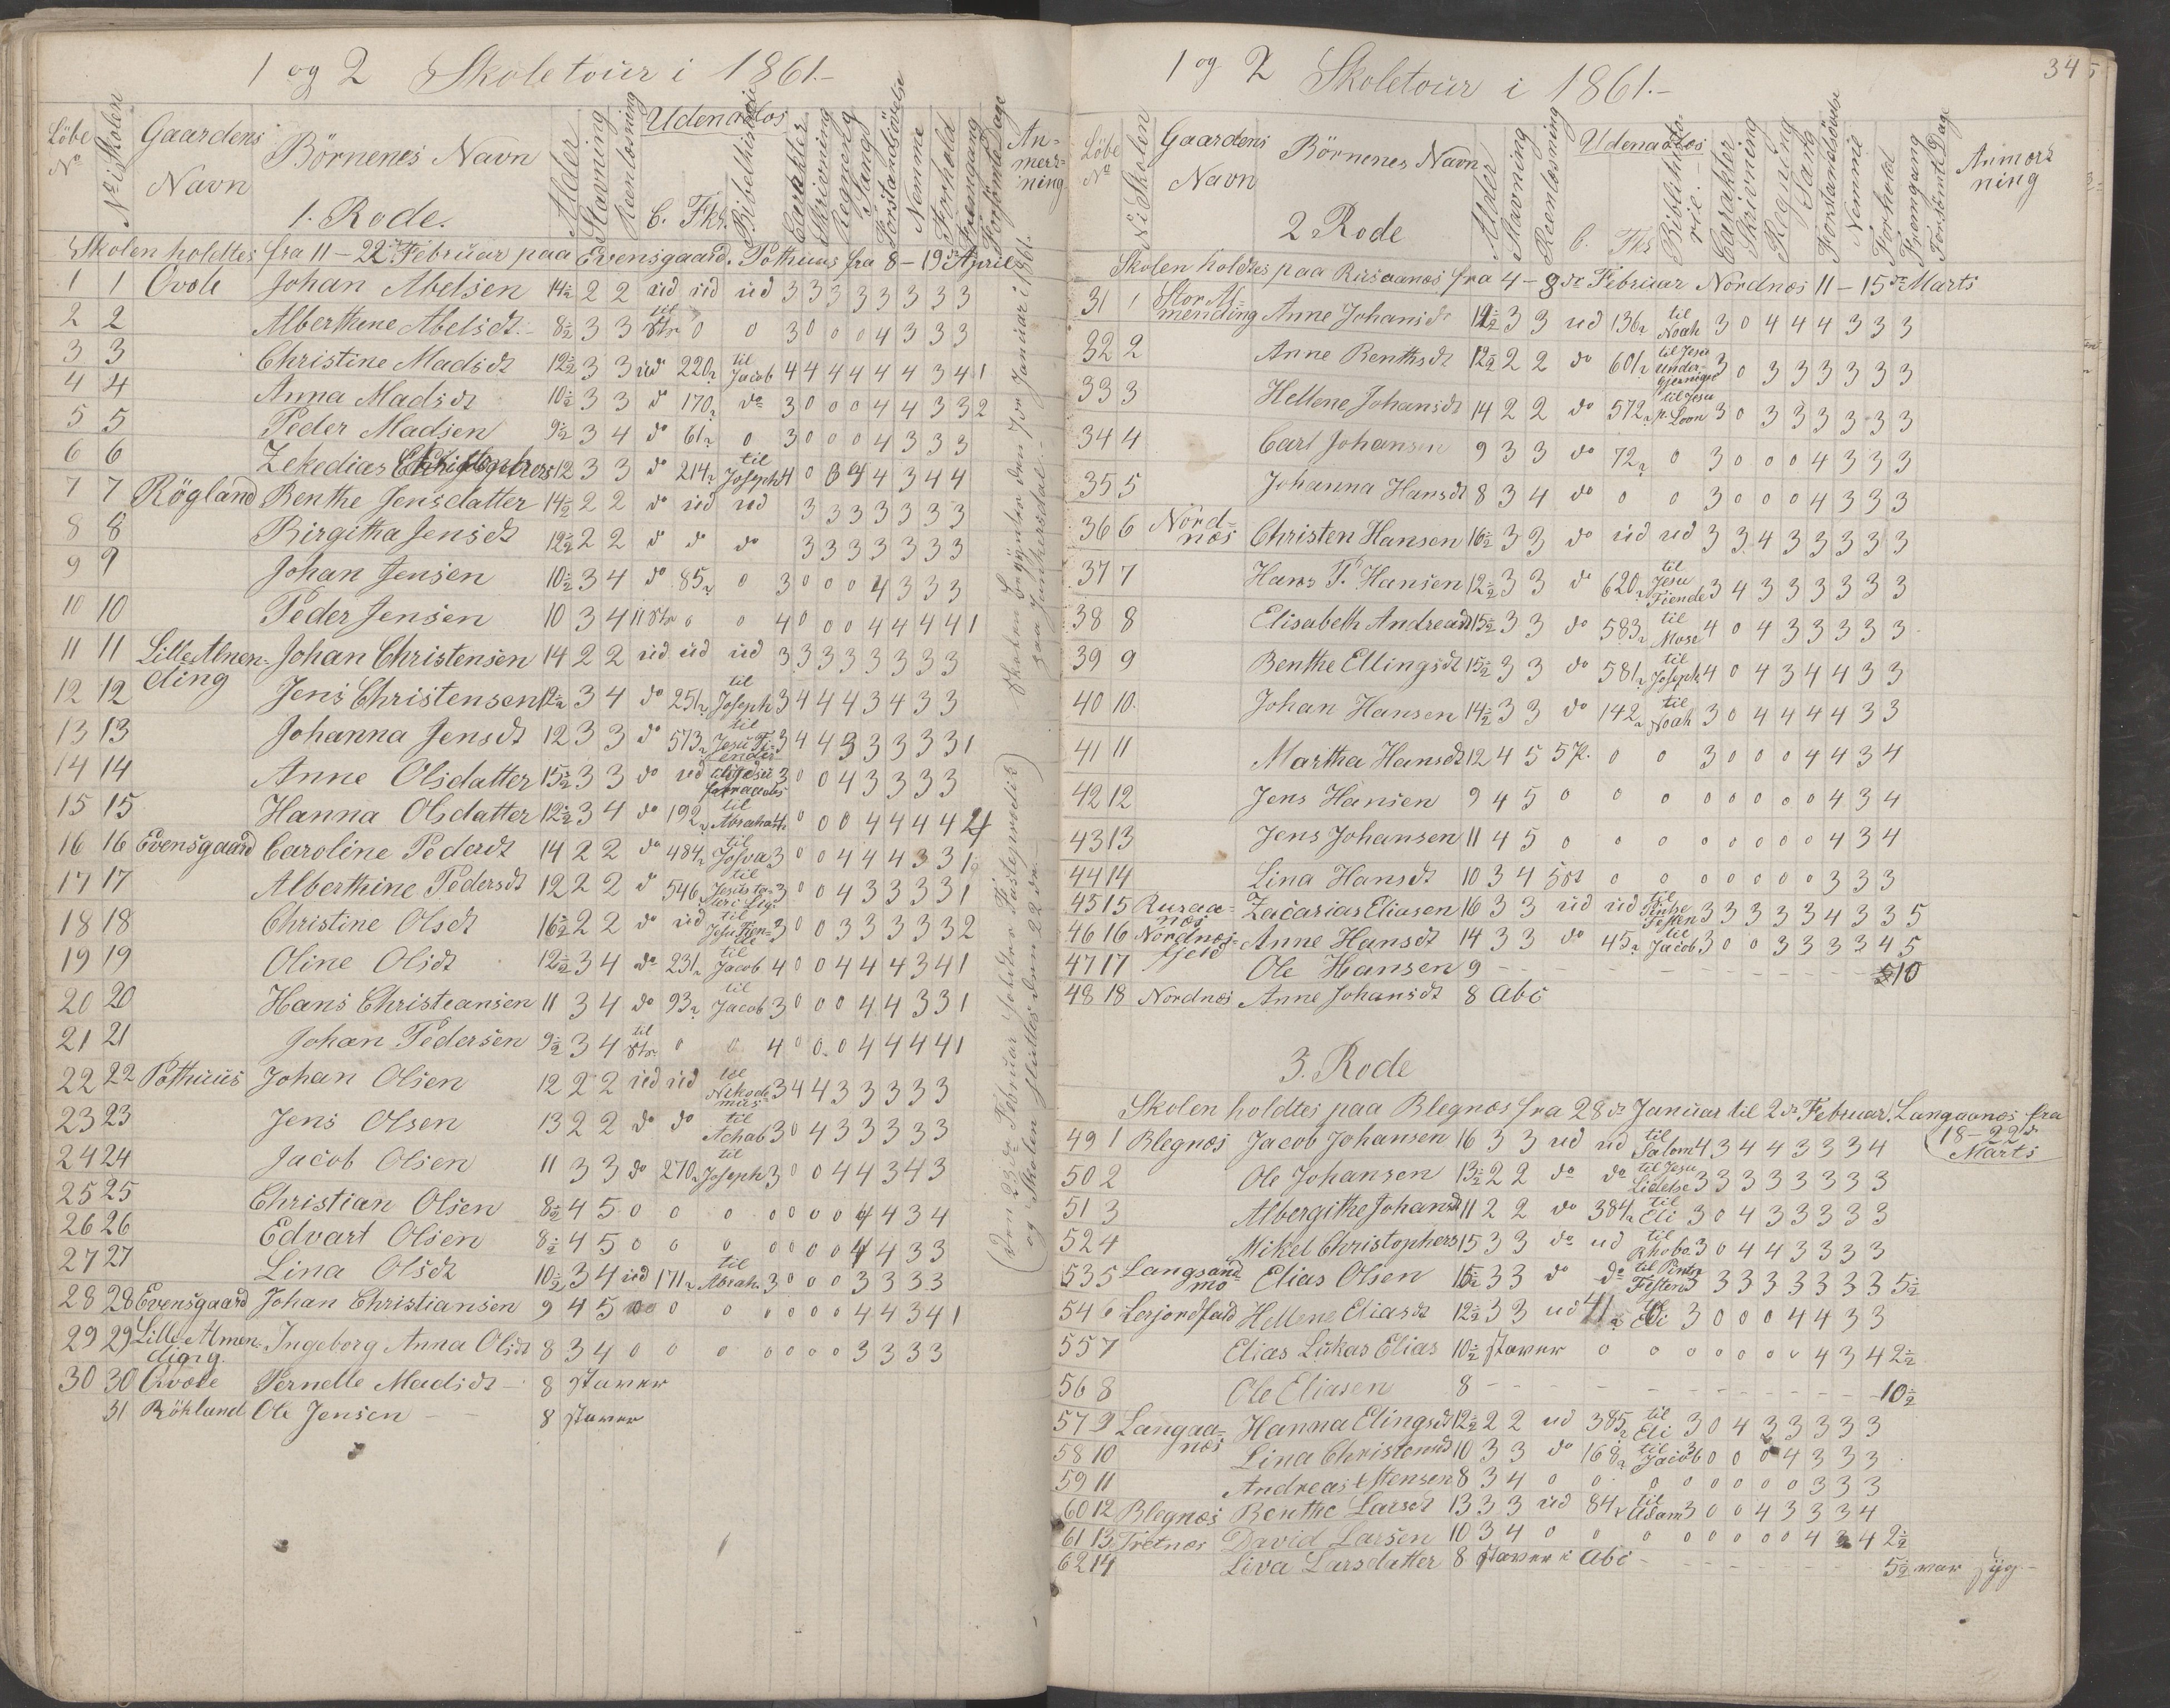 1 og 2 Skoletour i 1861.-
Löbe No
No i Skolen
Gaardens Navn
Börnenes Navn
1. Rode.
Alder
Stavning
Reenlæsning
Udenadlæs
C. Fkl. Bibelhistorie
Carakter
Skrivning
Regning
Sang
Forstandsövelse
Nemme
Forhold
Fremgang
Forsömte Dage
An-
mærk-
ning
Skolen holdtes fra 11-22de Februar paa Evensgaard. Pothuus fra 8-19de April
1 1 Ovole Johan Abelsen 14½ 2 2 ud ud ud 3 3 3 3 3 3 3 3
2 2 Alberthine Abelsdt. 8½ 3 3 til 8tr 0 0 3 0 0 0 4 3 3 3
3 3 Christine Madsdt 12½ 3 3 ud 220 til Jacob 4 4 4 4 4 4 3 4 1
4 4 Anna Madsdt 10½ 3 3 do 170 do 3 0 0 0 4 4 3 3 2
5 5 Peder Madsen 9½ 3 4 do 61 0 3 0 0 0 4 3 3 3
6 6 Zekedias 12 3 3 do 214 til Joseph 4 0 3 4 4 3 4 4
7 7 Rögland Benthe Jensdatter 14½ 2 2 do ud ud 3 3 3 3 3 3 3 3
8 8 Birgitha Jensdt 12½ 2 2 do do do 3 3 3 3 3 3 3 3
9 9 Johan Jensen 10½ 3 4 do 85 0 3 0 0 0 4 3 3 3
10 10 Peder Jensen 10 3 4 11 8tr 0 0 4 0 0 0 4 4 4 4 1
11 11 Lille Almen-ding Johan Christensen 14 2 2 ud ud ud 3 3 3 3 3 3 3 3
12 12 Jens Christensen 12½ 3 4 do 251 til Joseph 3 4 4 4 3 4 3 3
13 13 Johanna Jensdt 12 3 3 do 573 til Jesu Fiender 3 4 4 3 3 3 3 3 1
14 14 Anne Olsdatter 15½ 3 3 do ud til Jesu 3 0 0 4 3 3 3 3
15 15 Hanna Olsdatter 12½ 3 4 do 192 til Abraham 4 0 0 0 4 4 4 4 2
16 16 Evensgaard Caroline Pedersdt 14 2 2 do 484 til Josva 3 0 0 4 4 4 3 3 1
17 17 Alberthine Pedersdt 12 2 2 do 546 til 3 0 0 4 3 3 3 3 1
18 18 Christine Olsdt 16½ 2 2 do ud til Jesu Fiende 3 0 0 3 3 3 3 3 2
19 19 Oline Olsdt 12½ 3 4 do 231 til Jacob 4 0 0 4 4 4 3 4 1
20 20 Hans Christiansen 11 3 4 do 93 til Jacob 3 0 0 0 4 4 3 3 1
21 21 Johan Pedersen 9½ 3 4 til 8tr 0 0 4 0 0 0 4 4 4 4 1
22 22 Pothuus Johan Olsen 12 2 2 ud ud til Nikodemus 3 4 4 3 3 3 3 3
23 23 Jens Olsen 13 2 2 do do til Achab 3 0 4 3 3 3 3 3
24 24 Jacob Olsen 11 3 3 do 270 til Joseph 3 0 0 4 4 3 4 3
25 25 Christian Olsen 8½ 4 5 0 0 0 0 0 0 0 4 4 3 4
26 26 Edvart Olsen 8½ 4 5 0 0 0 0 0 0 0 4 4 3 3
27 27 Lina Olsdt 10½ 3 4 ud 171 til Abrah. 3 0 0 0 3 3 3 3
28 28 Evensgaard Johan Christiansen 9 4 5 0 0 0 0 0 0 0 4 4 3 4 1
29 29 Lille Almen-digig. Ingeborg Anna Olsdt 8 3 4 0 0 0 0 0 0 0 3 3 3 3
30 30 Ovole Pernelle Madsdt - 8 staver
31 Rökland Ole Jensen - - 8 staver
Skolen begyndte den 7de Januar i 1861.
paa Junkersdal.-
(Den 23de Februar holdtes Fasteprædik)
og Skolen sluttes den 22de
1 og 2 Skoletour i 1861.-
34
Löbe No
No i Skolen
Gaardens Navn
Börnenes Navn
2 Rode
Alder
Stavning
Reenlæsning
Udenadlæs
C. Fkl Biblihistorie.-
Carakter
Skrivning
Regning
Sang
Forstandsövelse
Nemme
Forhold
Fremgang
Forsömte Dage
Anmærk
ning
Skolen holdtes paa Rusaanæs fra 4-8de Februar Nordnæs 11-15de Marts
31 1 Stor Al-mending Anne Johansdt 12½ 3 3 ud 136 til Noah 3 0 4 4 4 3 3 3
32 2 Anne Benthsdt 12½ 2 2 do 601 til Jesu Under-gjerninger 3 0 3 3 3 3 3 3
33 3 Hellene Johansdt 14 2 2 do 572 til Jesu p. Loon 3 0 3 3 3 3 3 3
34 4 Carl Johansen 9 3 3 do 72 0 3 0 0 0 4 3 3 3
35 5 Johanna Hansdt 8 3 4 do 0 0 3 0 0 0 4 3 3 3
36 6 Nord-næs Christen Hansen 16½ 3 3 do ud ud 3 3 4 3 3 3 3 3
37 7 Hans P. Hansen 12½ 3 3 do 620 til Jesu Fiende 3 4 3 3 3 3 3 3
38 8 Elisabeth Andreasdt 15½ 3 3 do 583 til Mose 4 0 4 3 3 3 3 3
39 9 Benthe Ellingsdt 15½ 3 3 do 581 til Joseph 4 0 4 3 4 4 3 3
40 10. Johan Hansen 14½ 3 3 do 142 til Noah 3 0 4 4 4 4 3 3
41 11 Martha Hansdt 12 4 5 5P. 0 0 3 0 0 0 4 4 3 4
42 12 Jens Hansen 9 4 5 0 0 0 0 0 0 0 0 4 3 4
43 13 Jens Johansen 11 4 5 0 0 0 0 0 0 0 0 4 3 4
44 14 Lina Hansdt 10 3 4 0 0 0 0 0 0 0 3 3 3
45 15 Rusaa-næs Zacarias Eliasen 16 3 3 ud ud til Pintse Festen 3 3 3 3 3 4 3 3 5
46 16 Nordnæs-fjeld Anne Hansdt 14 3 3 do 45 til Jacob 3 0 0 3 3 3 3 4 5
47 17 Ole Hansen 9 - - - - - - - - 10
48 18 Nordnæs Anne Johansdt 8 Abc
3. Rode
Skolen holdtes paa Blegnæs fra 28de Januar til 2de Februar. Langaanæs fra
18-22de
Marts
49 1 Blegnæs Jacob Johansen 16 3 3 ud ud til Salom 4 3 4 4 3 3 3 4
50 2 Ole Johansen 13½ 2 2 do do til Jesu Lidelse 3 3 3 3 3 3 3 3
51 3 Albergithe Johansdt 11 2 2 do 384 til Eli 3 0 4 3 3 3 3 3
52 4 Mikel Christophers 15 3 3 do ud til Rhobo. 3 0 4 4 3 3 3 3
53 5 Langsand-mo Elias Olsen 15½ 3 3 do do til Pintse Festen 3 3 3 3 3 3 3 3 5½
54 6 Lerjordfald Hellene Eliasdt 12½ 3 3 ud 41 til Eli 3 0 0 0 4 4 3 3
55 7 Elias Lukas Elias 10½ staver 0 0 0 0 0 0 0 4 3 4 2½
56 8 Ole Eliasen 8 - - - - - - - - 10½
57 9 Langaa-næs Hanna Elingsdt 12½ 2 2 ud 385 til Eli 3 0 4 3 3 3 3 3
58 10 Lina Christensdt 10 3 3 do 168 til Jacob 3 0 0 0 4 3 3 3
59 11 Andreas Stensen 8 3 4 0 0 0 0 0 0 0 0 3 3 3
60 12 Blegnæs Benthe Larsdt 13 3 3 ud 84 til Adam 3 0 0 4 3 3 3 4
61 13 Tretnæs David Larsen 10 3 4 0 0 0 0 0 0 0 0 4 3 4 2½
62 14 Liva Larsdatter 8 staver i Abc - - - - - 5½ var syg -